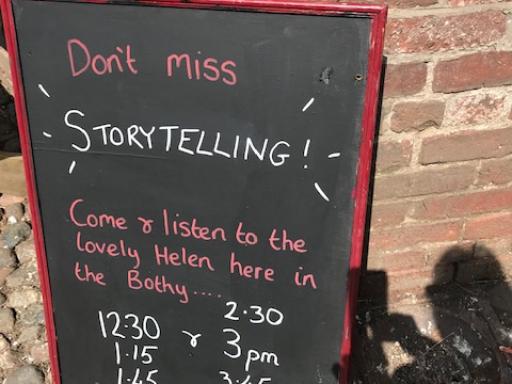 Don't miss
STORYTELLING!
Come & listen to the
lovely Helen here in
the Bothy....
12:30 & 2.30
1.15 3pm
1.45 3.45